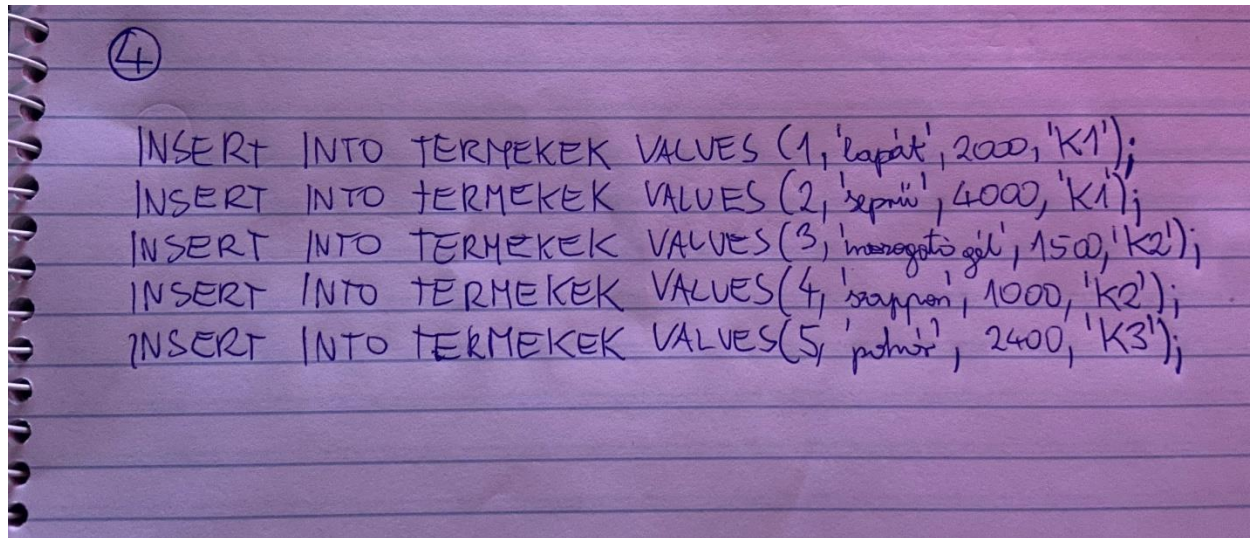 4
INSERT INTO TERMEKEK VALUES (1, 'lapát', 2000, 'K1');
INSERT INTO TERMEKEK VALUES (2, 'seprű', 4000, 'K1');
INSERT INTO TERMEKEK VALUES (3, 'mosogató gél', 1500, 'K2');
INSERT INTO TERMEKEK VALUES (4, 'szappan', 1000, 'K2');
INSERT INTO TERMEKEK VALUES (5, 'pohár', 2400, 'K3');